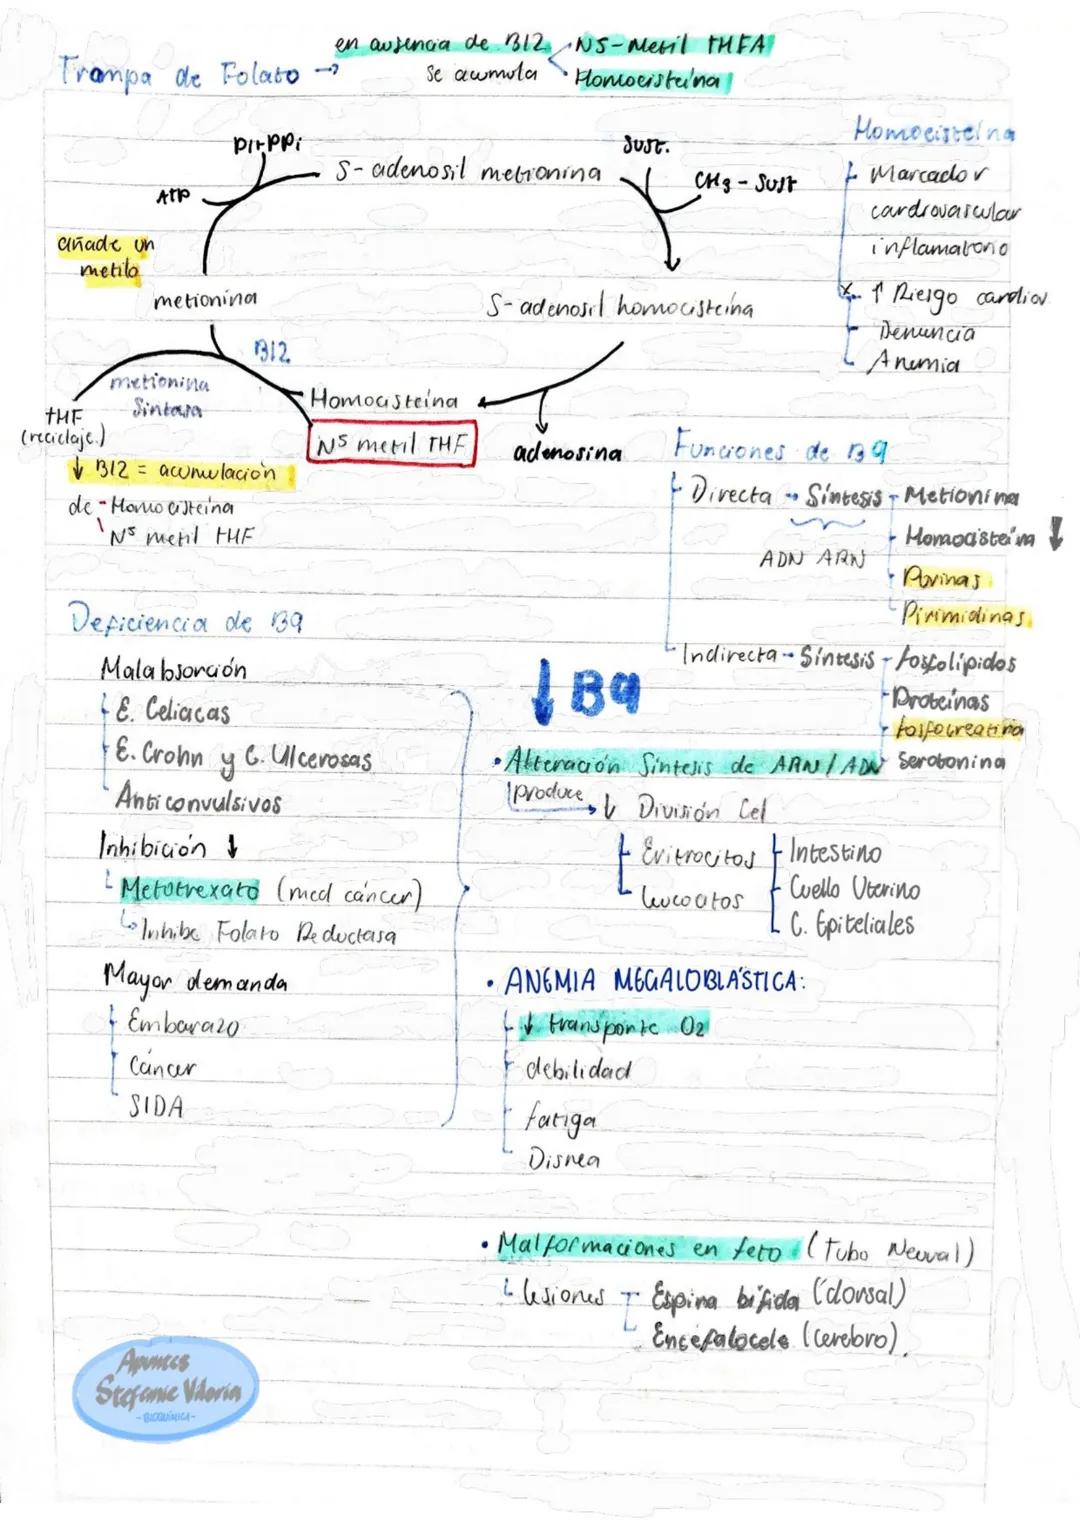 Trampa de Folato → en ausencia de B12 N5-Metil THFA
Se acumula Homocisteína
Pi+PPi
S-adenosil metionina
Sust.
CH3-Sust
ATP
añade un
metilo
metionina
S-adenosil homocisteína
B12
metionina
Sintasa
Homocisteína
N5 metil THF
adenosina
THF
(reciclaje)
↓ B12 = acumulación
de - Homocisteína
N5 metil THF
Homocisteína
Marcador
cardiovascular
inflamatorio
↑ Riesgo cardiov
Demencia
Anemia
Funciones de B9
Directa → Síntesis Metionina
ADN ARN
Homocisteína ↓
Purinas
Pirimidinas
Indirecta → Síntesis fosfolípidos
Proteínas
fosfocreatina
Serotonina
Deficiencia de B9
Malabsorción
E. Celiacas
E. Crohn y C. Ulcerosas
Anticonvulsivos
Inhibición ↓
Metotrexato (med cáncer)
↳ Inhibe Folato Reductasa
Mayor demanda
Embarazo
Cáncer
SIDA
↓ B9
• Alteración Síntesis de ARN/ADN
produce → ↓ División Cel
Eritrocitos Intestino
Leucocitos Cuello Uterino
C. Epiteliales
• ANEMIA MEGALOBLÁSTICA:
↓ transporte O2
debilidad
fatiga
Disnea
• Malformaciones en feto (Tubo Neural)
↳ lesiones Espina bífida (dorsal)
Encefalocele (cerebro).
Apuntes
Stefanie Viloria
-BIOQUÍMICA-